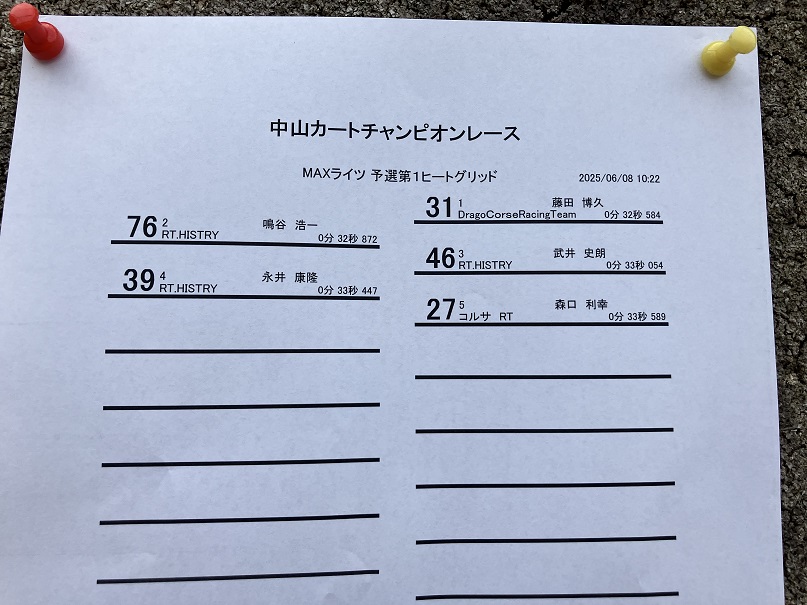 中山カートチャンピオンレース
MAXライツ 予選第1ヒートグリッド 2025/06/08 10:22
31 1 藤田 博久
DragoCorseRacingTeam 0分 32秒 584
76 2 鳴谷 浩一
RT.HISTRY 0分 32秒 872
46 3 武井 史朗
RT.HISTRY 0分 33秒 054
39 4 永井 康隆
RT.HISTRY 0分 33秒 447
27 5 森口 利幸
コルサ RT 0分 33秒 589